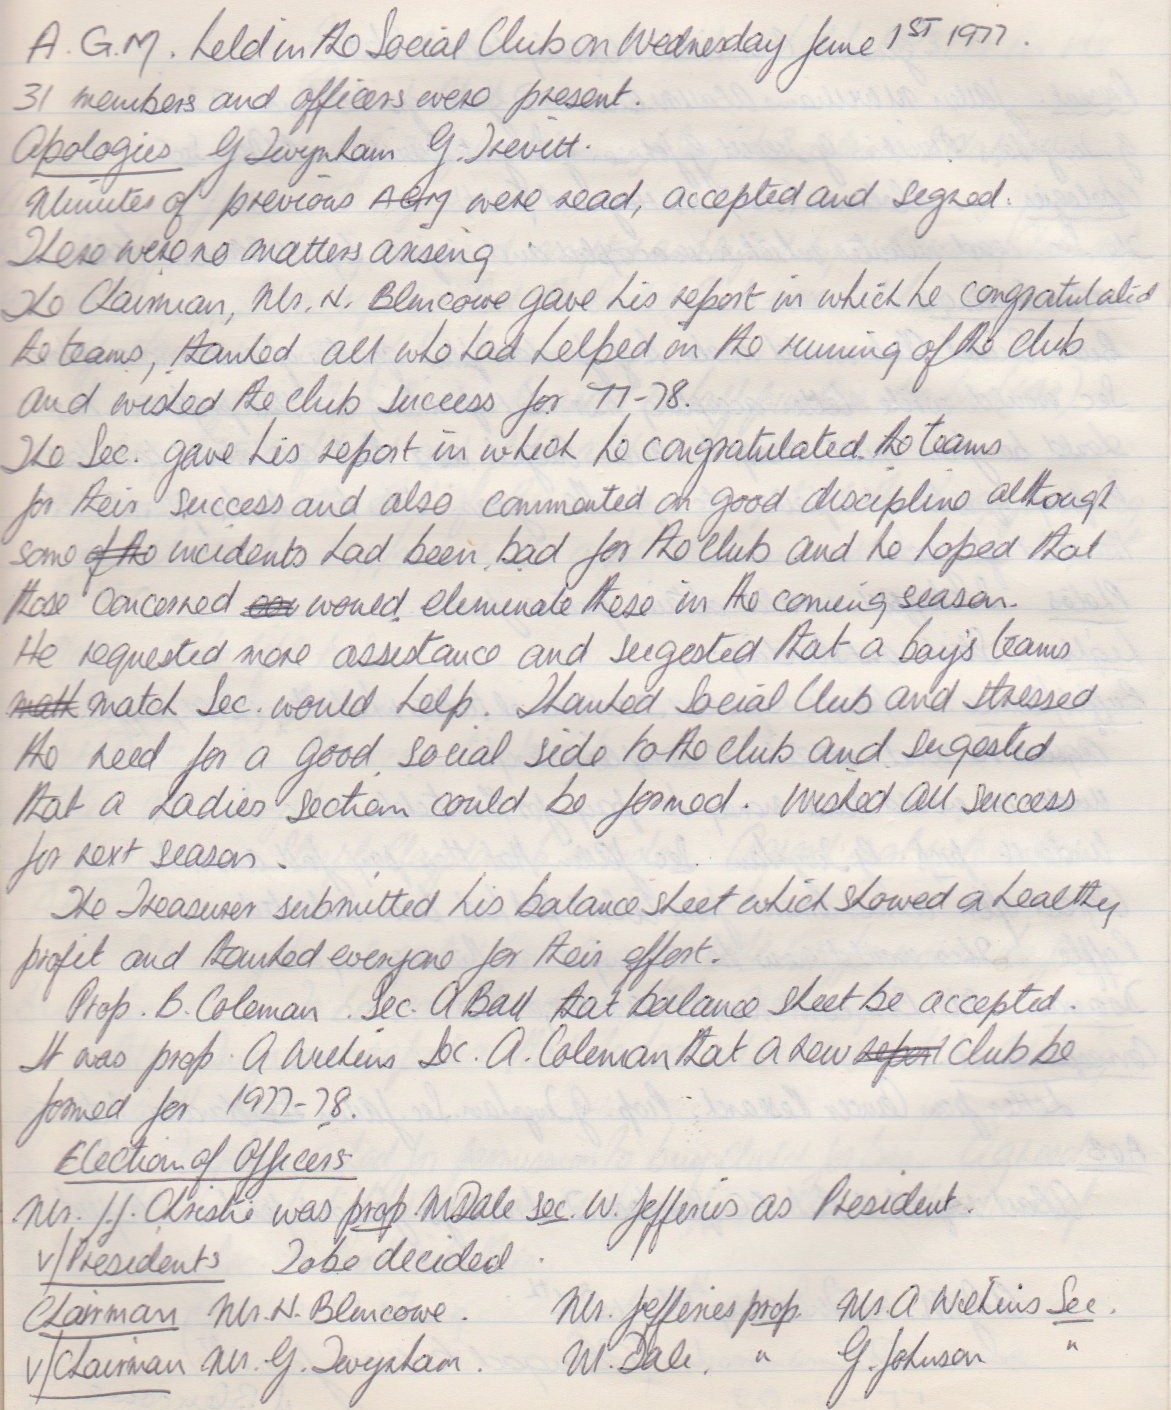 A.G.M. held in the Social Club on Wednesday June 1ST 1977.
31 members and officers were present.
Apologies G Twynham G. Trevitt.
Minutes of previous AGM were read, accepted and signed.
There were no matters arising
The Chairman, Mr. N. Blencowe gave his report in which he congratulated
the teams, thanked all who had helped in the running of the club
and wished the club success for 77-78.
The Sec. gave his report in which he congratulated the teams
for their success and also commented on good discipline although
some of the incidents had been bad for the club and he hoped that
those concerned would eliminate these in the coming season.
He requested more assistance and sugested that a boy's teams
math match Sec. would help. Thanked Social Club and stressed
the need for a good social side to the club and sugested
that a Ladies section could be formed. Wished all success
for next season.
The Treasurer submitted his balance sheet which showed a healthy
profit and thanked everyone for their effort.
Prop. B. Coleman. Sec. A Ball that balance sheet be accepted.
It was prop. A Wilkins Sec. A. Coleman that a new report club be
formed for 1977-78.
Election of Officers
Mr. J.J. Christie was prop M Dale sec. W. Jefferies as President.
V/Presidents To be decided.
Chairman Mr. N. Blencowe. Mr. Jefferies prop. Mr. A Wilkins Sec.
V/Chairman Mr. G. Twynham. M. Dale. " G. Johnson "